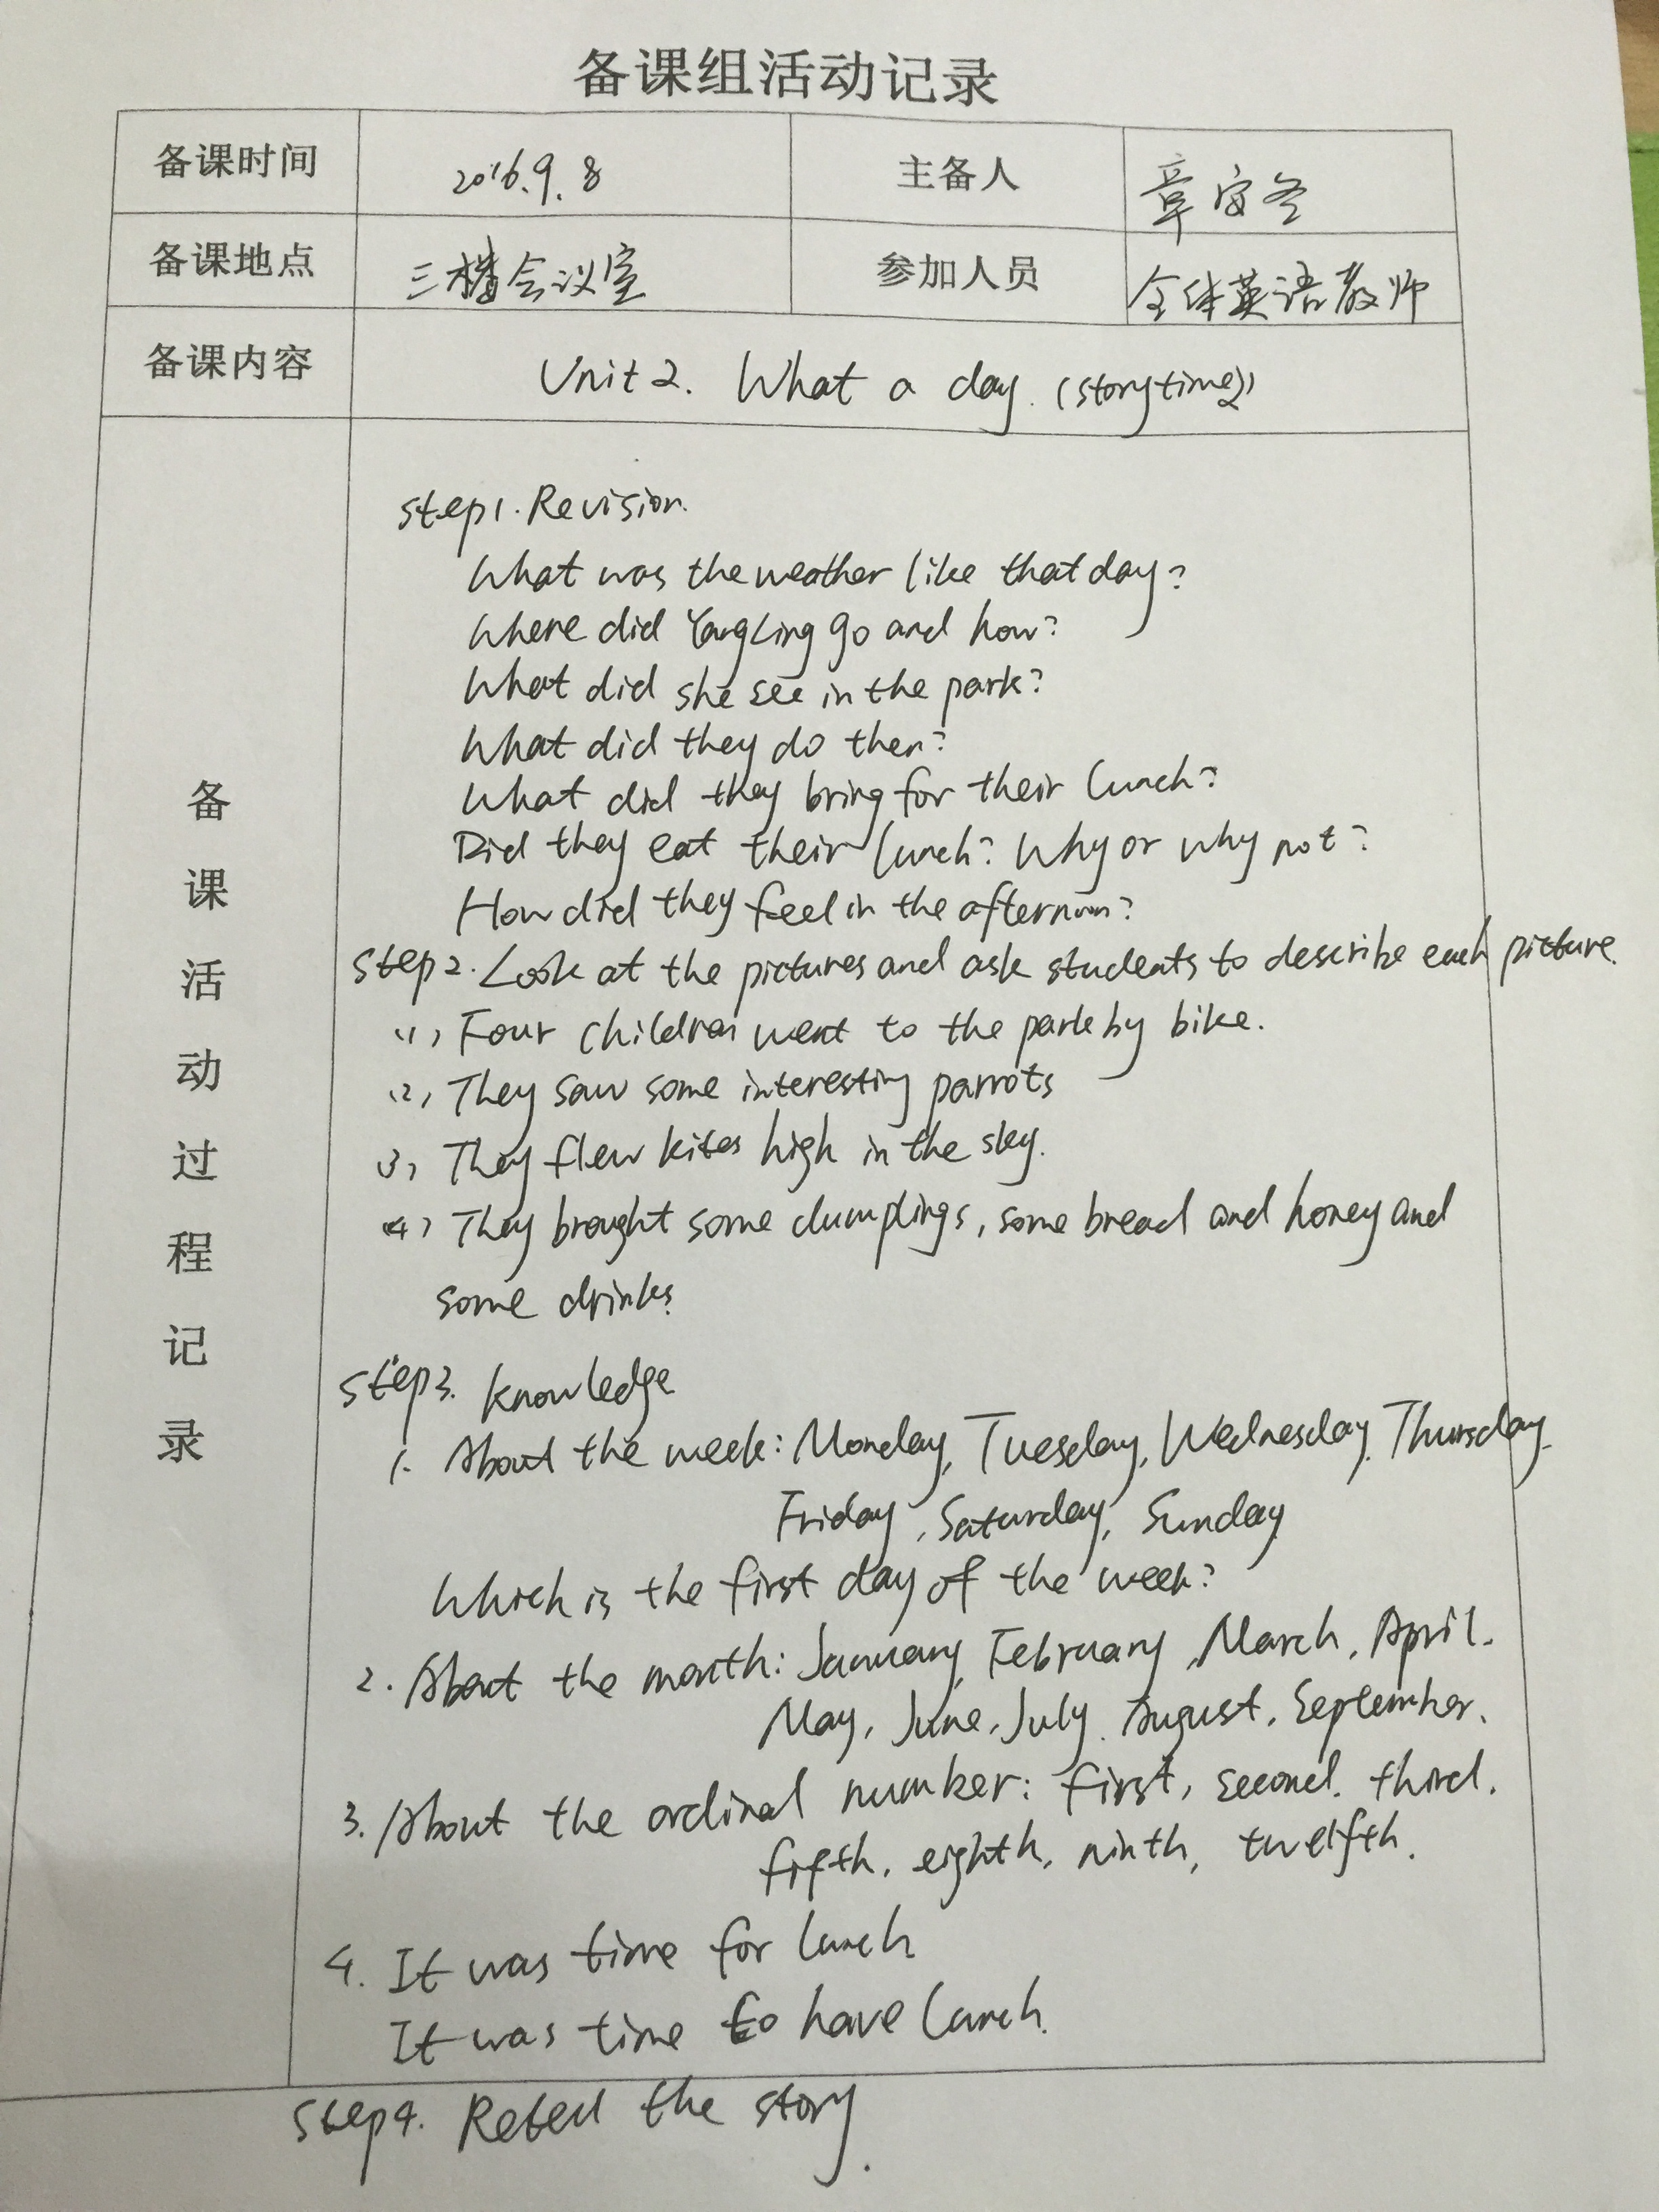 备课组活动记录
备课时间 2016.9.8 主备人 章安冬
备课地点 三楼会议室 参加人员 全体英语教师
备课内容 Unit 2. What a day. (story time2)
备课活动过程记录
Step1. Revision.
What was the weather like that day?
Where did YangLing go and how?
What did she see in the park?
What did they do then?
What did they bring for their lunch?
Did they eat their lunch? Why or why not?
How did they feel in the afternoon?
Step2. Look at the pictures and ask students to describe each picture.
(1) Four children went to the park by bike.
(2) They saw some interesting parrots
(3) They flew kites high in the sky.
(4) They brought some dumplings, some bread and honey and
some drinks.
Step3. knowledge
1. About the week: Monday, Tuesday, Wednesday, Thursday.
Friday, Saturday, Sunday
Which is the first day of the week?
2. About the month: January, February, March, April.
May, June, July. August, September.
3. About the ordinal number: first, second. third.
fifth, eighth, ninth, twelfth.
4. It was time for lunch
It was time to have lunch.
Step4. Retell the story.